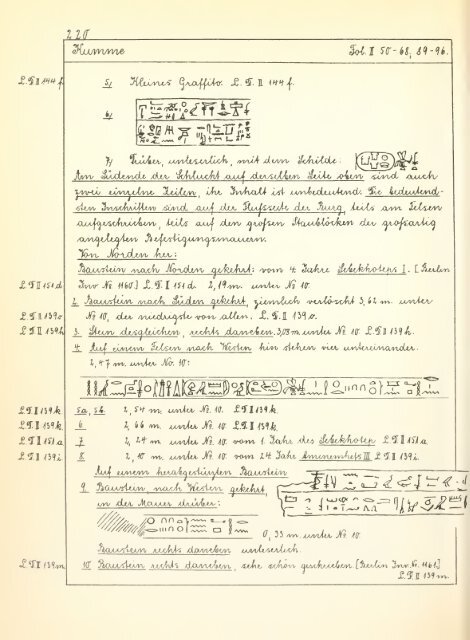 220
Kumme Fol. II 50-68, 89-96.
L. D. II 144 f. 5, Kleines Graffito. L. D. II 144 f.
6,
7, Früher, unleserlich, mit dem Schilde:
Am Südende der Schlucht auf derselben Seite oben sind auch
zwei einzelne Zeilen, ihr Inhalt ist unbedeutend. Die bedeutend-
sten Inschriften sind auf der Flußseite der Burg, teils am Felsen
aufgeschrieben, teils auf den großen Baublöcken der großartig
angelegten Befestigungsmauern.
Von Norden her:
Baustein nach Norden gekehrt; vom 4. Jahre Sebekhoteps I. [Berlin
L. D. II 151 d Inv. Nr. 1160] L. D. II 151 d. 2,19 m. unter Nr. 10.
2. Baustein nach Süden gekehrt, ziemlich verlöscht 3,62 m. unter
L. D. II 139 o Nr. 10, der niedrigste von allen. L. D. II 139 o.
L. D. II 139 h. 3. Stein desgleichen, rechts daneben, 3,08 m. unter Nr. 10 L. D. II 139 h.
4. Auf einem Felsen nach Westen hin stehen vier untereinander.
2,47 m. unter No. 10:
L. D. II 139 k 5a, 5b. 2,54 m. unter Nr. 10. L. D. II 139 k.
L. D. II 139 k. 6 2,66 m. unter Nr. 10 L. D. II 139 k.
L. D. II 151 a 7 2,24 m unter Nr. 10 vom 1. Jahr des Sebekhotep L. D. II 151 a
L. D. II 139 i. 8 2,10 m. unter Nr. 10. vom 24. Jahr Amenemhets III L. D. II 139 i.
Auf einem herabgestürzten Baustein
9 Baustein, nach Westen gekehrt,
in der Mauer drüber:
0,33 m unter Nr. 10
Baustein rechts daneben unleserlich.
L. D. II 139 m 10 Baustein rechts daneben, sehr schön geschrieben. [Berlin Inv. Nr. 1161]
L. D. II 139 m.